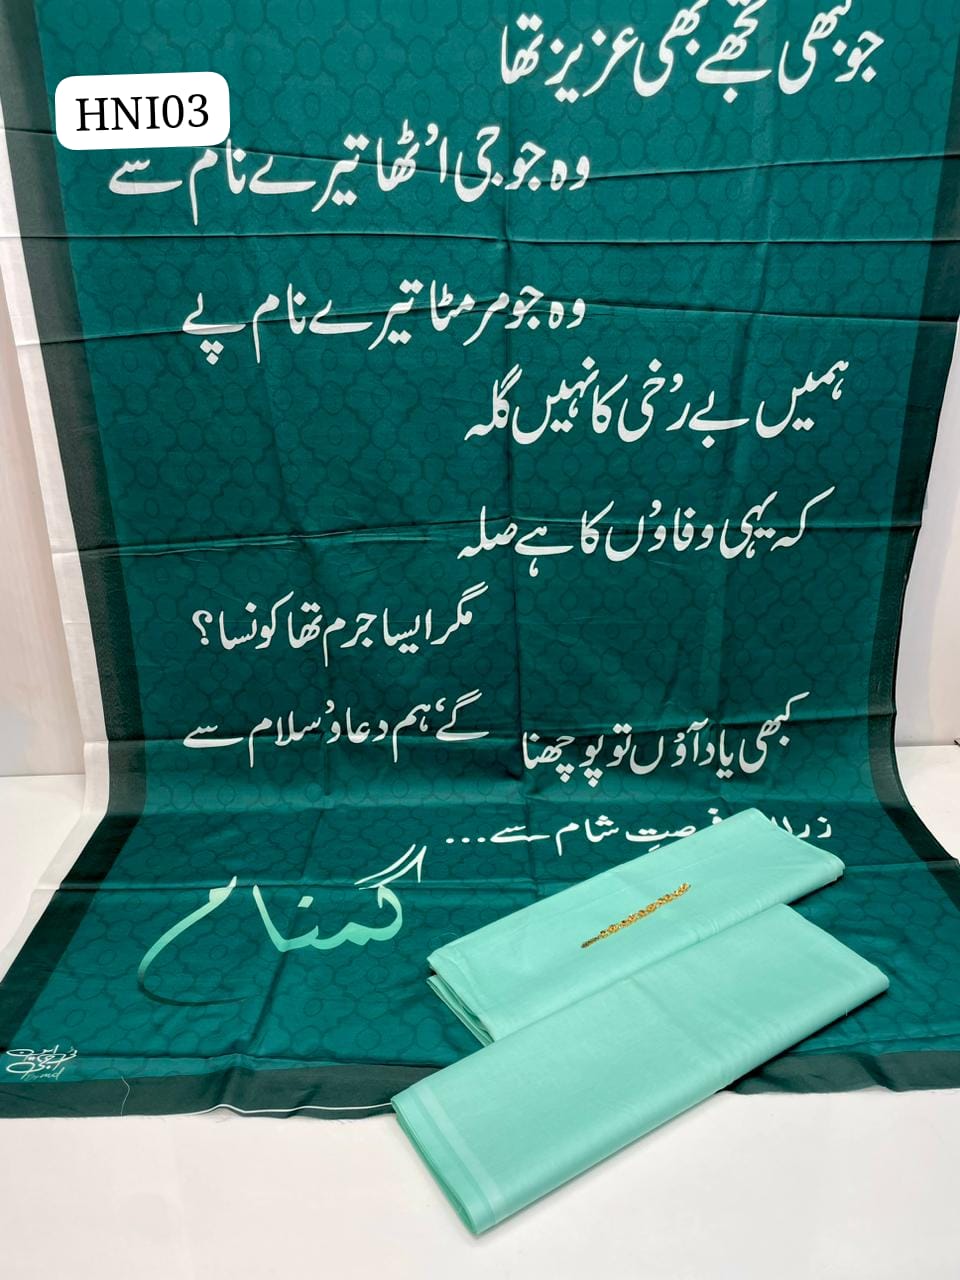 HNI03
جو کبھی تجھے بھی عزیز تھا
وہ جو جی اُٹھا تیرے نام سے
وہ جو مر مٹا تیرے نام پے
ہمیں بے رُخی کا نہیں گلہ
کہ یہی وفاؤں کا ہے صلہ
مگر ایسا جرم تھا کونسا؟
گے، ہم دعا وُ سلام سے
کبھی یاد آؤں تو پوچھنا
فرصتِ شام سے...
گمنام